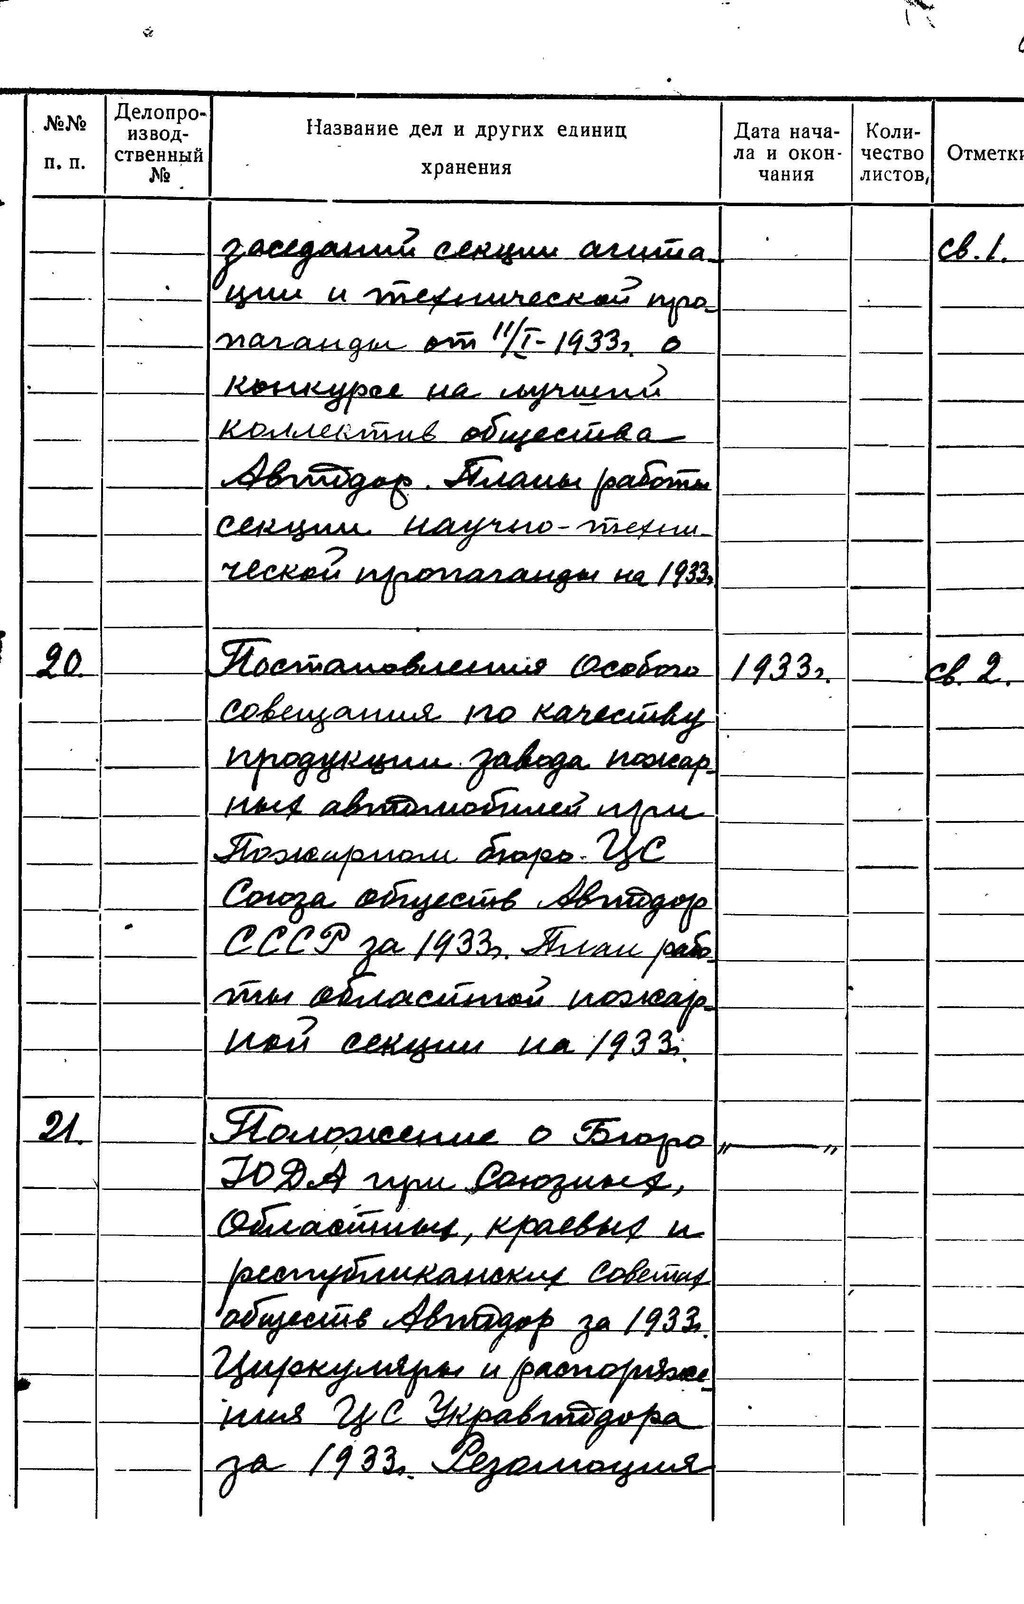 №№ п. п.
Делопро-
извод-
ственный
№
Название дел и других единиц
хранения
Дата нача-
ла и окон-
чания
Коли-
чество
листов
Отметки
заседаний секции агита- св. 1.
ции и технической про-
паганды от 11/I-1933г. о
конкурсе на лучший
коллектив общества
Автодор. Планы работы
секции научно-техни-
ческой пропаганды на 1933г.
20. Постановления Особого 1933г. св. 2.
совещания по качеству
продукции завода пожар-
ных автомобилей при
Пожарном бюро ЦС
Союза обществ Автодор
СССР за 1933г. План рабо-
ты областной пожар-
ной секции на 1933г.
21. Положение о Бюро „ — "
ЮДА при Союзных,
Областных, краевых и
республиканских советах
обществ Автодор за 1933г.
Циркуляры и распоряже-
ния ЦС Укравтодора
за 1933г. Резолюция